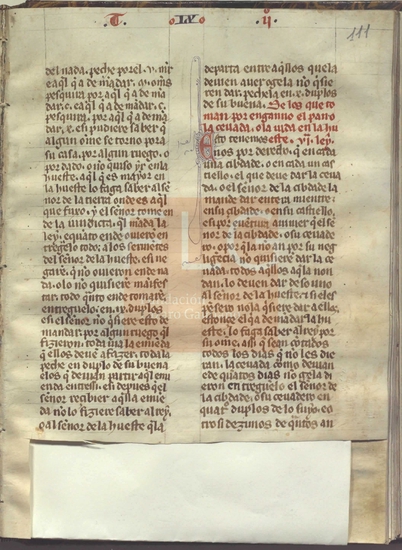 T LVo ij
111
del nada. peche por el. v. mr
e aql q a de mādar. a. oms
pesquira por aql q a de ma
dar. c. e aql q a de mādar. c.
pesquira. por aql q a de mā
dar. e. si pudiere saber q
algun ome se torno por a
su casa. por algun ruego. o
por dado. o no quiso yr en la
hueste. aql q es mayor en
la hueste lo faga saber al se
nor de la tierra onde es aql
que fuxo. y el señor tome en
de la qual māda la
ley. equato ende ouiero en
tregelo todo. a los seruietes
del señor de la hueste. si ne
gare. q no ouieron ende na
da. o lo no quisiere manifes
tar. todo quto ende tomare.
entreguelo. en. x. duplos
e si el señor. no qsiere esto de
mandar. por algun ruego q
fizieron. toda uia la emieda
q ellos deue a fazer. toda la
peche en duplo de su buena
e los q demas partir aql emi
enda entressi. e si depues qel
señor recibier aqlla emie
da no lo fiziere saber al rey.
o al señor de la hueste q la
departa entre aqllos quela
deuien auer o gela no qsie
ren dar. peche la en. x. duplos
de su buena. De los que to
man por enganno el pan o
la ceuada. o la vida en la hu
este. vi. ley.
por derecho. q en cada
una cibdade. o en cada un cas
tiello. el que deue dar la ceua
da. o el señor de la cibdade la
mande dar entera miente.
en su cibdade. o en su castiello.
e si por auiniere qel se
ñor de la cibdade. o su ceuade
ro. o por q la no an por su ne
gligecia no quisiere dar la ce
uada. todos aqllos aq la non
dan. lo deuen dar de so uno
al señor de la hueste. e si el es
persero no la qsiere dar a ellos.
estonce el q a de mādar la hu
este. lo faga saber al rey por
su ome. assi q sean cotados
todos los dias q no les die
ran. la ceuada como deuian
e de quatos dias no gela di
eron entreguelo el señor de
la cibdade. o su ceuadero en
quatro duplos de lo suyo. e o
tro si dezimos de qntos an